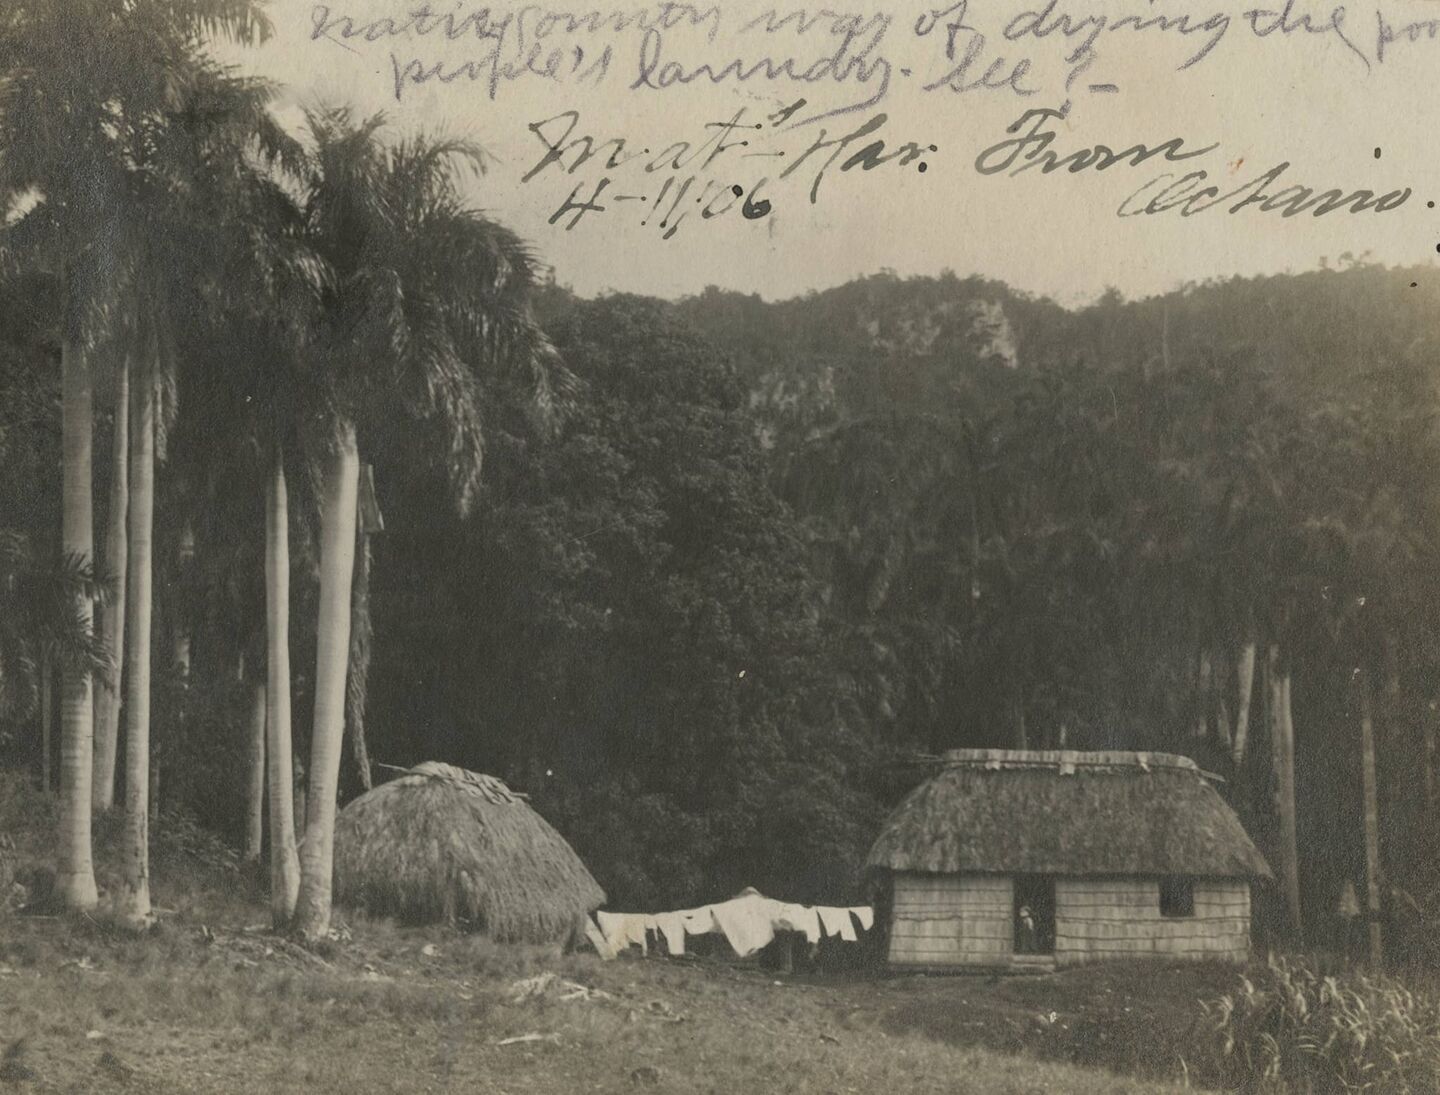 native country way of drying the poor
people's laundry. See!-
Mat's - Hav. From
Octavio.
4-11,'06